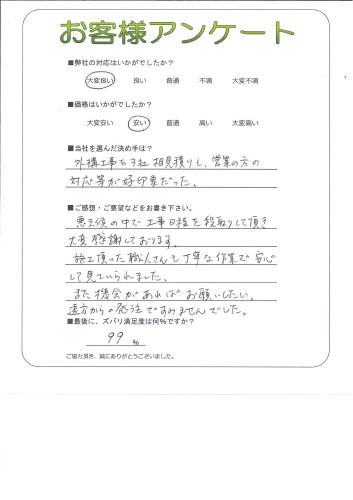 お客様アンケート
■弊社の対応はいかがでしたか？
大変良い 良い 普通 不満 大変不満
■価格はいかがでしたか？
大変安い 安い 普通 高い 大変高い
■当社を選んだ決め手は？
外構工事を3社相見積りし、営業の方の
対応等が好印象だった。
■ご感想・ご要望などをお書き下さい。
悪天候の中で工事日程を段取りして頂き
大変感謝しております。
施工頂いた職人さんも丁寧な作業で安心
して見ていられました。
また機会があればお願いしたい。
遠方からの発注ですみませんでした。
■最後に、ズバリ満足度は何%ですか？
99 %
ご協力頂き、誠にありがとうございました。